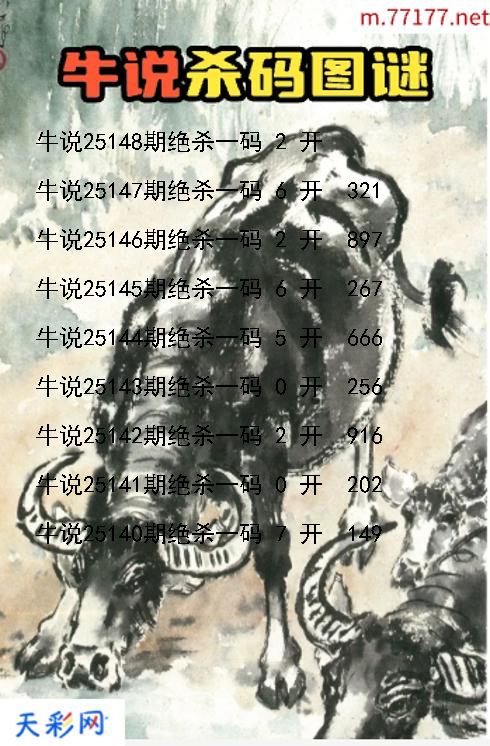 m.77177.net
牛说杀码图谜
牛说25148期绝杀一码 2 开
牛说25147期绝杀一码 6 开 321
牛说25146期绝杀一码 2 开 897
牛说25145期绝杀一码 6 开 267
牛说25144期绝杀一码 5 开 666
牛说25143期绝杀一码 0 开 256
牛说25142期绝杀一码 2 开 916
牛说25141期绝杀一码 0 开 202
牛说25140期绝杀一码 7 开 149
天彩网